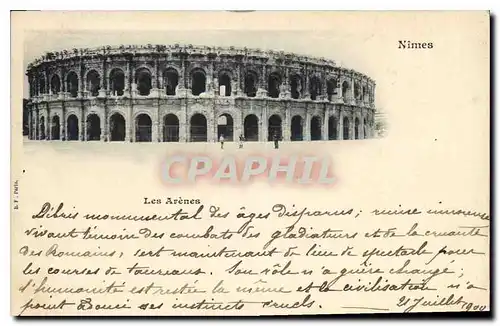 Nimes
CPAPHIL
Les Arènes
B. F. Paris.
Débris monumental des âges disparus; ruine immense
vivant témoin des combats des gladiateurs et de la cruauté
des Romains, sert maintenant de lieu de spectacle pour
les courses de taureaux. Son rôle n'a guère changé;
l'humanité est restée la même et la civilisation n'a
point adouci ses instincts cruels. 21 Juillet 1900